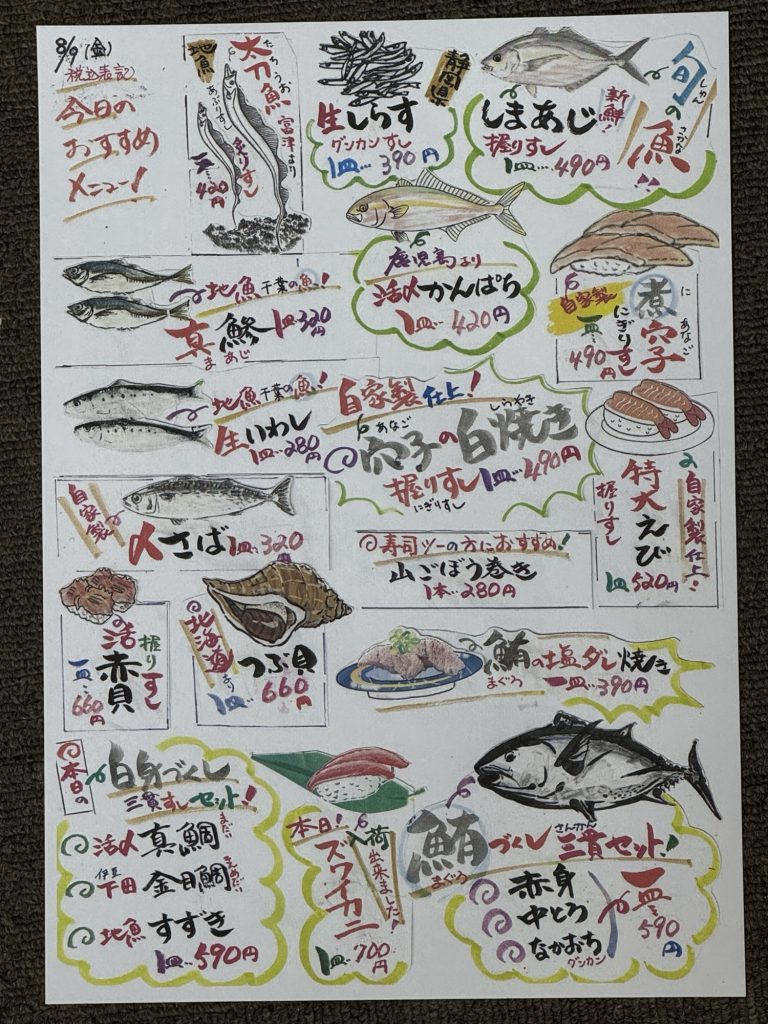 8/9(金)
税込表記
今日の
おすすめ
メニュー!
地魚
太刀魚
たちうお
富津より
あぶりすし
炙りすし
一皿…420円
静岡県
生しらす
グンカンすし
1皿…390円
旬の魚!!
しゅん
さかな
新鮮!
しまあじ
握りすし
1皿…490円
鹿児島より
活〆かんぱち
1皿…420円
自家製
煮穴子
に
あなご
にぎりすし
一皿…490円
地魚千葉の魚!
真鯵 1皿320円
まあじ
地魚千葉の魚!
生いわし
1皿…280円
自家製仕上!
あなご
しらやき
穴子の白焼き
握りすし 1皿…490円
にぎりすし
自家製仕上!
特大えび
握りすし
1皿520円
自家製
〆さば 1皿…320円
◎寿司ツーの方におすすめ!
山ごぼう巻き
1本…280円
活赤貝
握りすし
一皿…660円
北海道より
つぶ貝
1皿…660円
鮪の塩ダレ焼き
まぐろ
一皿…390円
本日の
白身づくし
三貫すしセット!
活〆 真鯛
まだい
伊豆
下田 金目鯛
きんめだい
地魚 すずき
1皿…590円
本日!
入荷出来ました!
ズワイカニ
1皿…700円
鮪づくし 三貫セット!
まぐろ
さんかん
赤身
中とろ
なかおち
グンカン
一皿…590円